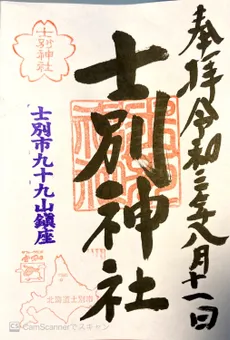 奉拝令和三年八月十一日
士別神社
士別神社
士別市九十九山鎮座
北海道士別市
CamScannerでスキャン